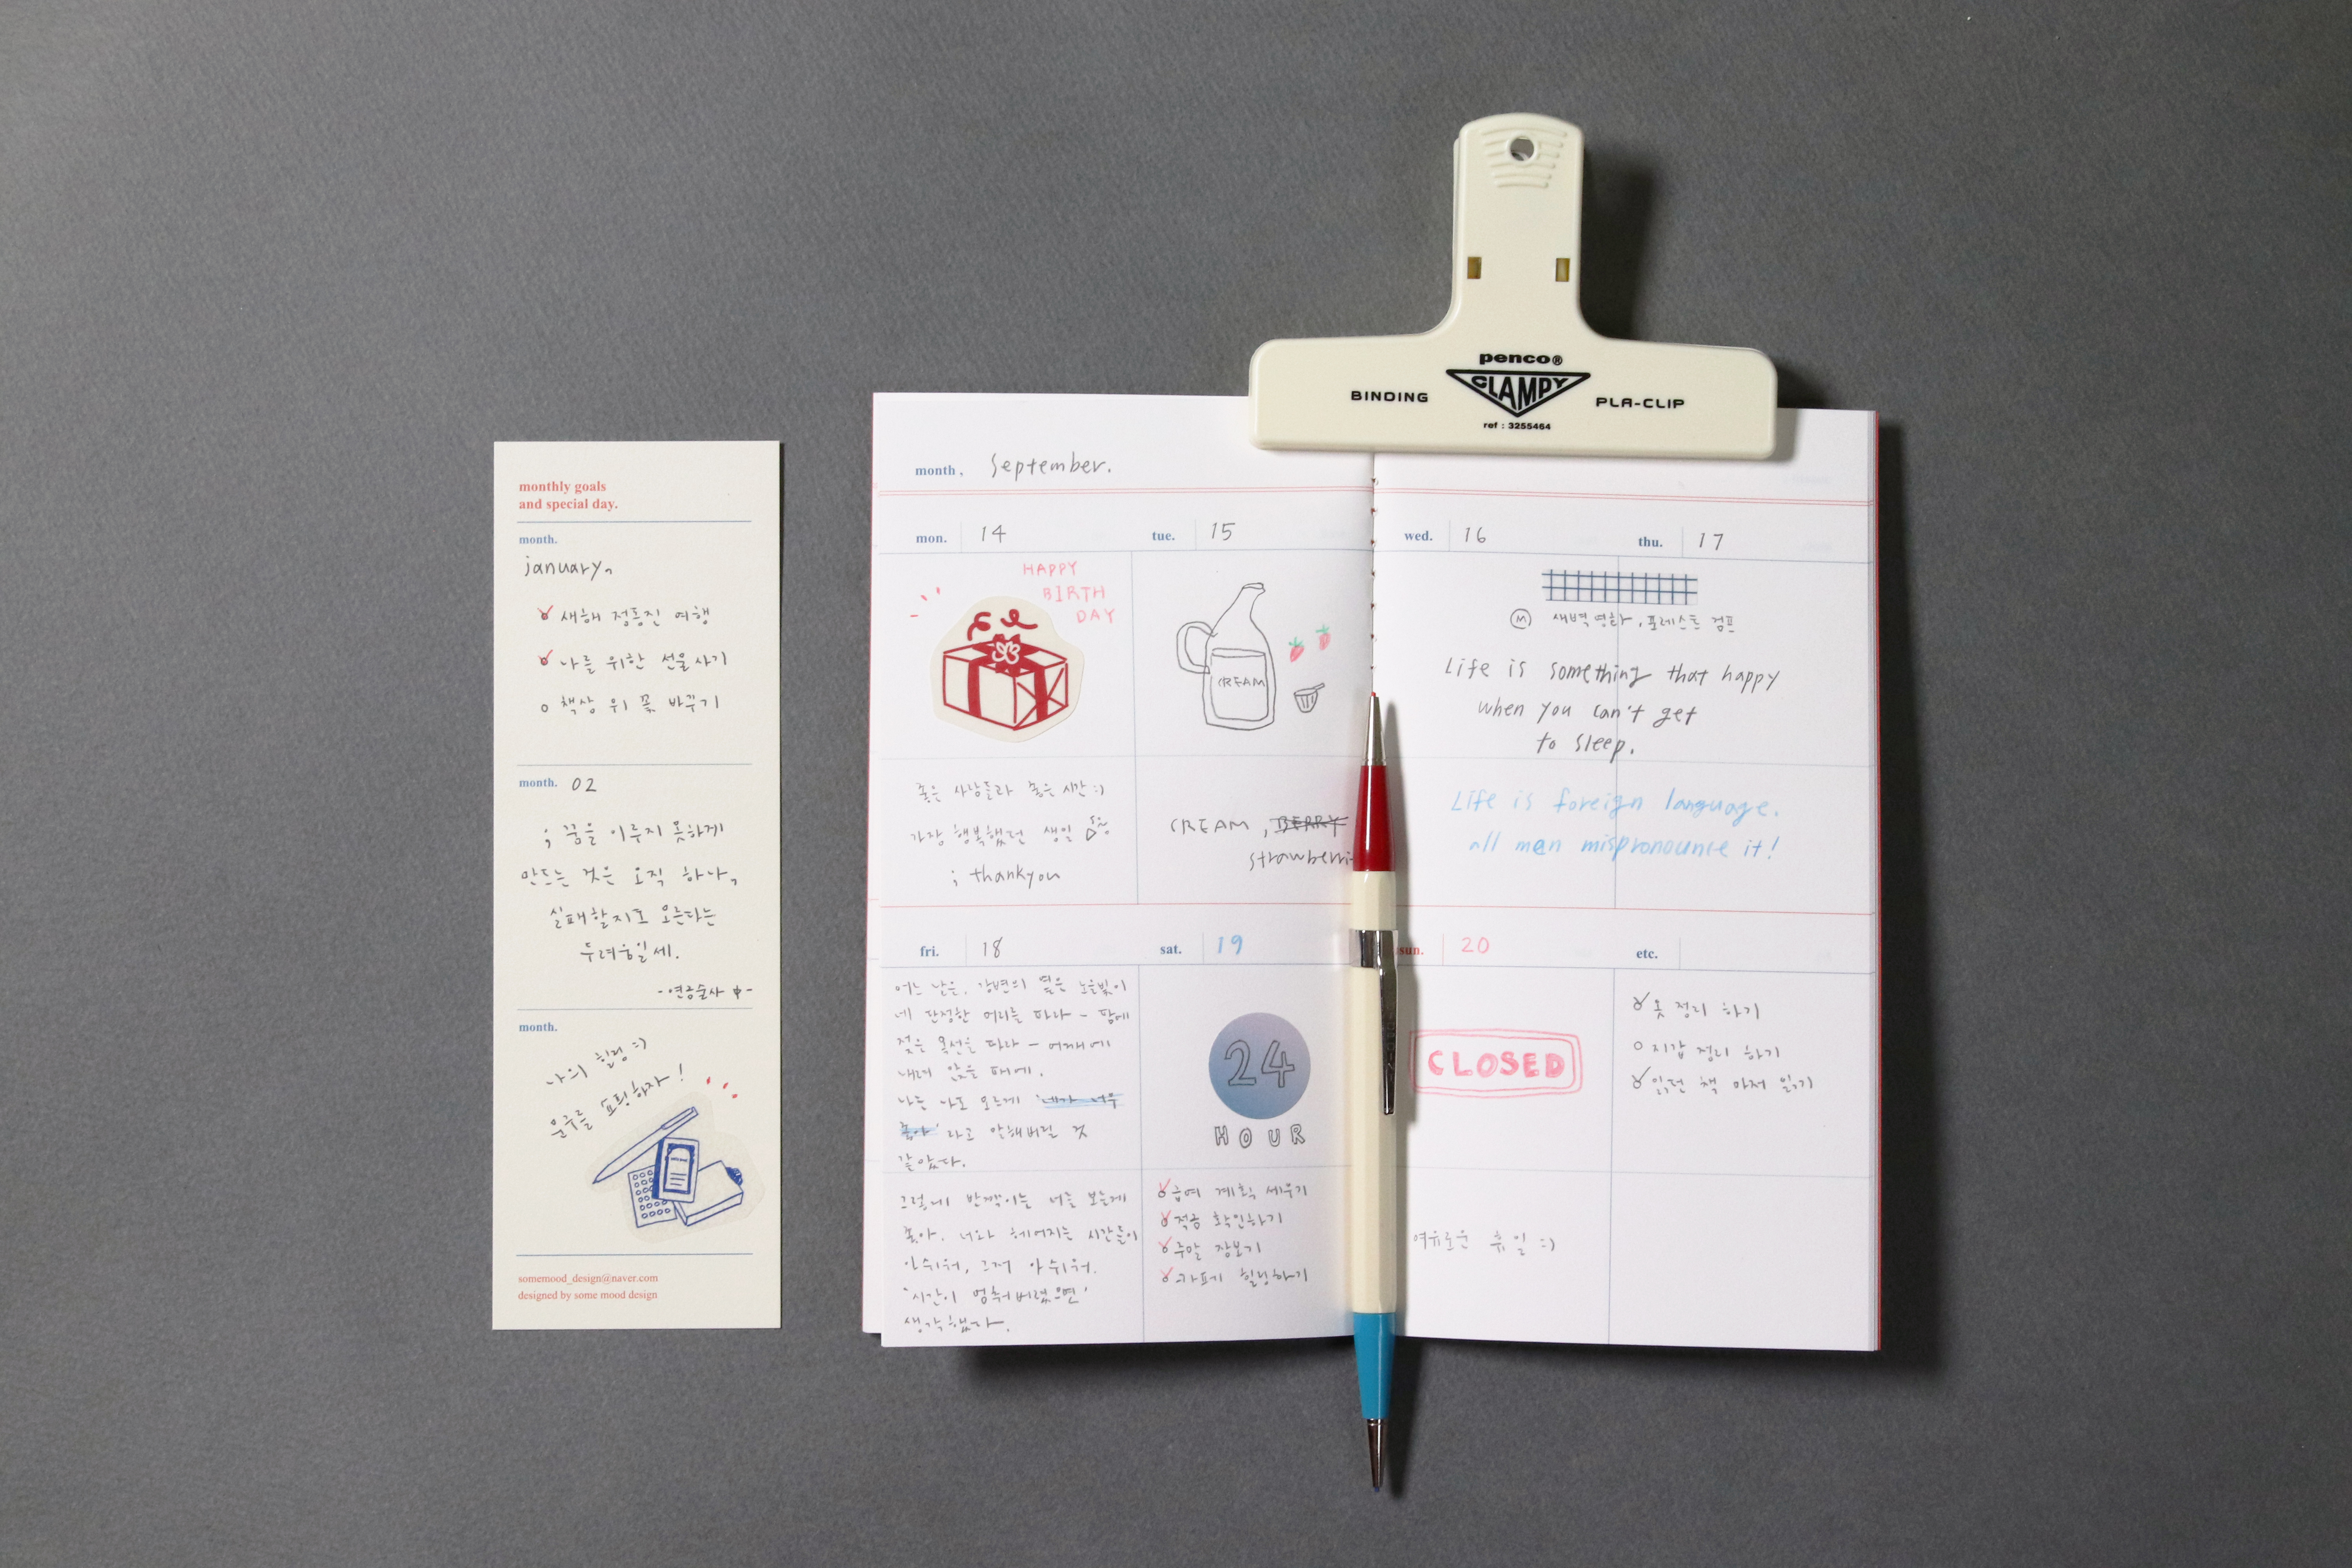 monthly goals
and special day.
month.
january,
새해 정동진 여행
나를 위한 선물사기
책상 위 꽃 바꾸기
month. 02
; 꿈을 이루지 못하게
만드는 것은 오직 하나,
실패할지도 모른다는
두려움일세.
-연금술사 中-
month.
나의 힐링 :)
문구를 쇼핑하자!
somemood_design@naver.com
designed by some mood design
penco®
CLAMPY
BINDING
PLA-CLIP
ref : 3255464
month, September.
mon. 14
HAPPY
BIRTH
DAY
좋은 사람들과 좋은 시간 :)
가장 행복했던 생일
; thankyou
tue. 15
CREAM
CREAM, BERRY
wed. 16
thu. 17
M 새벽영화, 포레스트 검프
Life is something that happy
when you can't get
to sleep.
Life is foreign language.
all men mispronounce it!
fri. 18
어느 날은, 강변의 옅은 노을빛이
네 단정한 머리를 따라 - 땀에
젖은 목선을 따라 - 어깨에
내려 앉을 때에.
나는 나도 모르게 '네가 너무
좋아' 라고 말해버릴 것
같았다.
그렇게 반짝이는 너를 보는게
좋아. 너와 헤어지는 시간들이
아쉬워, 그저 아쉬워.
'시간이 멈춰버렸으면'
생각했다.
sat. 19
24
HOUR
급여 계획 세우기
적금 확인하기
주말 장보기
카페가 힐링하기
sun. 20
CLOSED
여유로운 휴일 :)
etc.
옷 정리 하기
지갑 정리 하기
읽던 책 마저 읽기